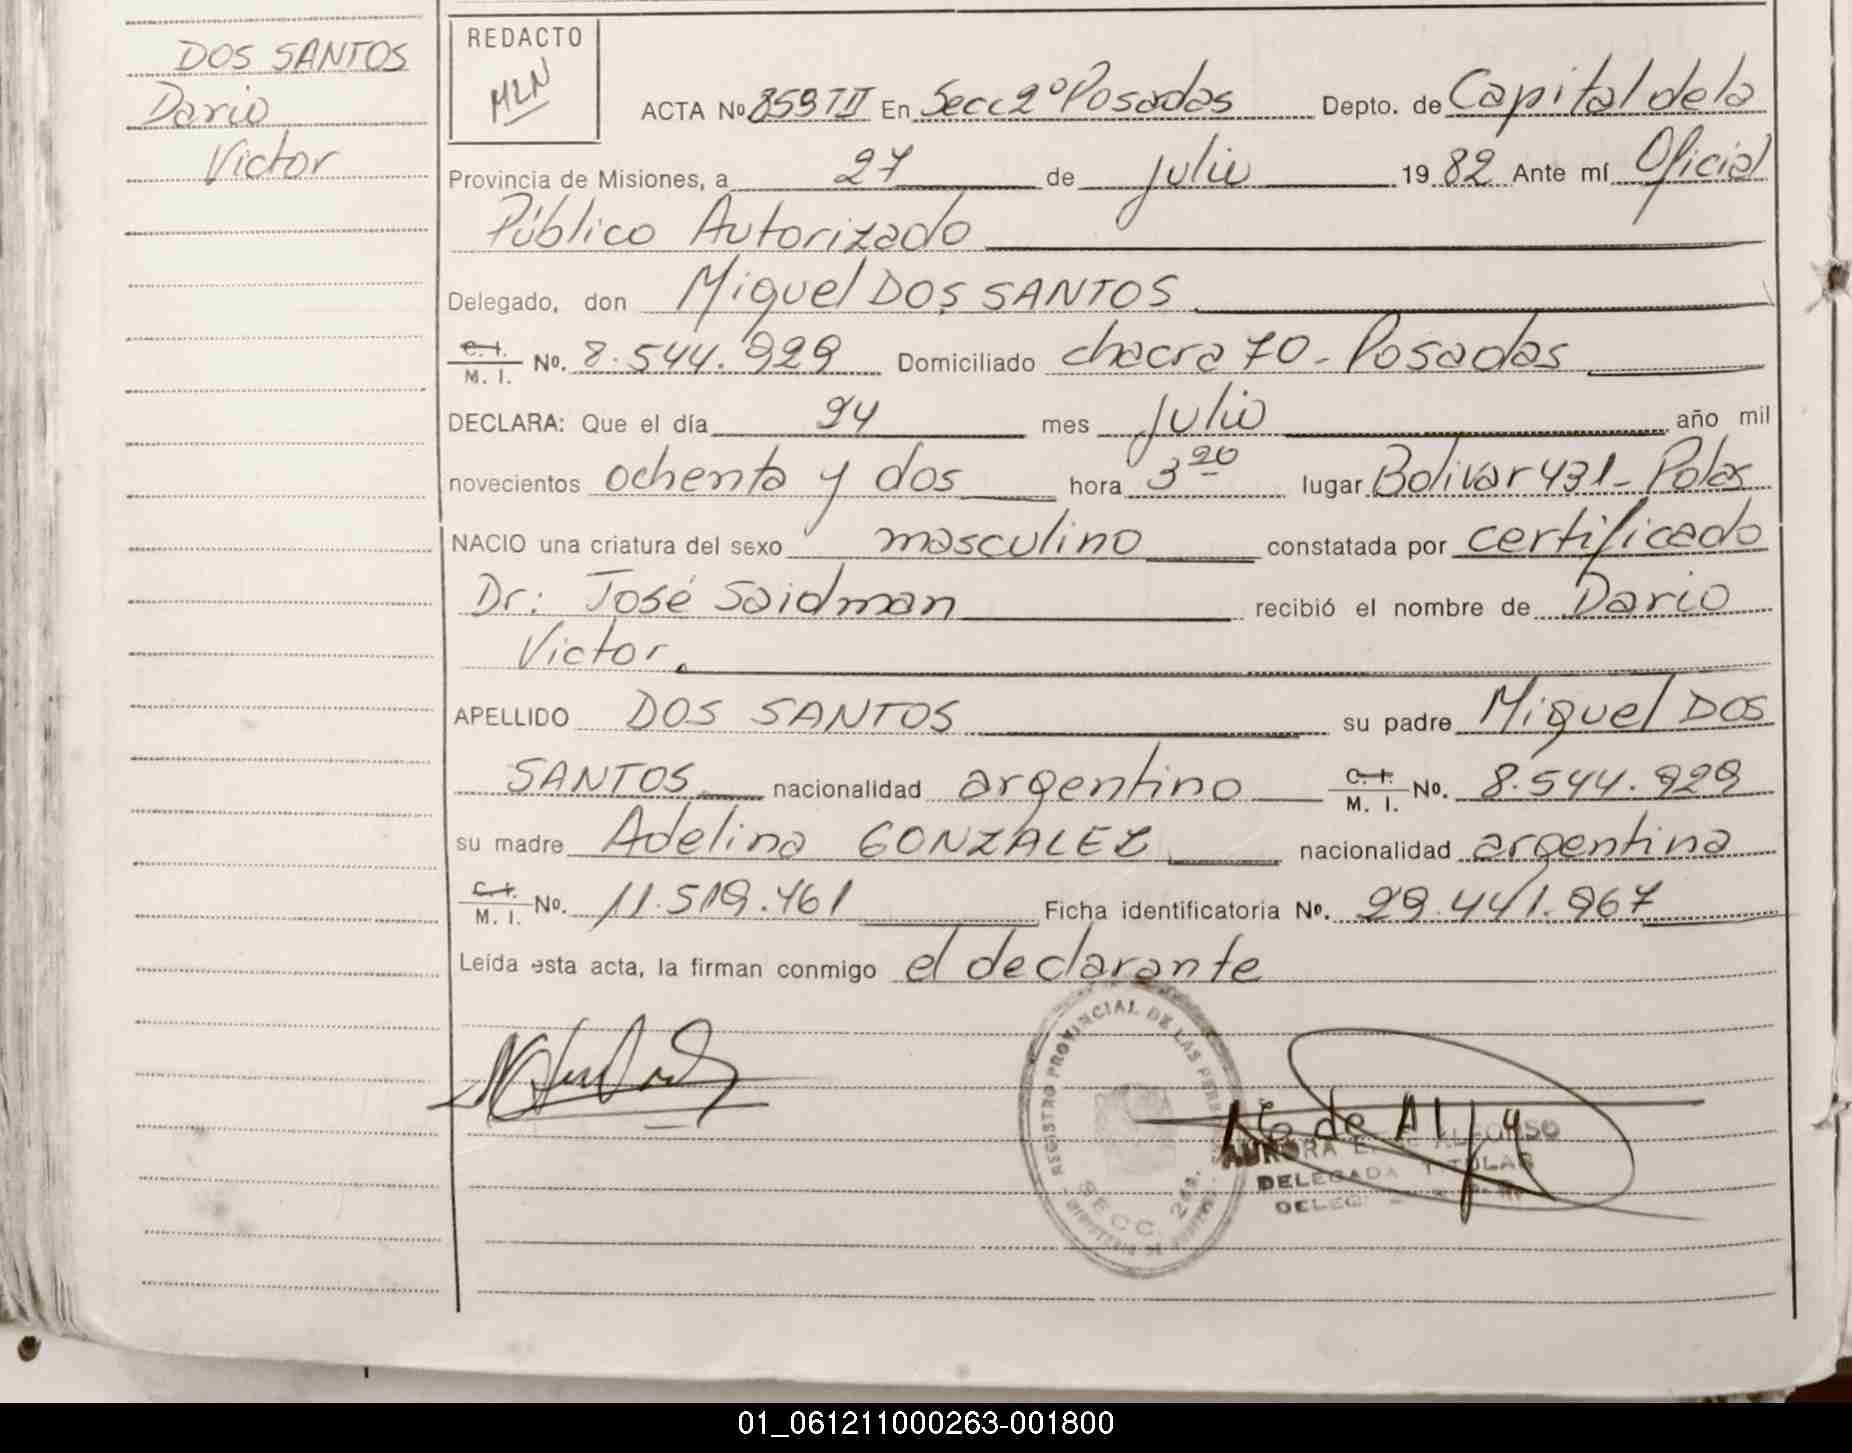 DOS SANTOS
Dario
Victor
REDACTO
MLN
ACTA Nº 859 TII En Secc 2º Posadas Depto. de Capital de la
Provincia de Misiones, a 27 de julio 1982 Ante mí Oficial
Público Autorizado
Delegado, don Miguel DOS SANTOS
C. I. / M. I. No. 8.544.929 Domiciliado chacra 70 - Posadas
DECLARA: Que el día 24 mes julio año mil
novecientos ochenta y dos hora 3 20 lugar Bolivar 431 - Pdas
NACIO una criatura del sexo masculino constatada por certificado
Dr: José Saidman recibió el nombre de Dario
Victor.
APELLIDO DOS SANTOS su padre Miguel DOS
SANTOS nacionalidad argentino C. I. / M. I. No. 8.544.929
su madre Adelina GONZALEZ nacionalidad argentina
C. I. / M. I. No. 11.519.461 Ficha identificatoria No. 29.441.967
Leída esta acta, la firman conmigo el declarante
REGISTRO PROVINCIAL DE LAS
SECC. 2da.
AURORA ALFONSO
DELEGADA TITULAR